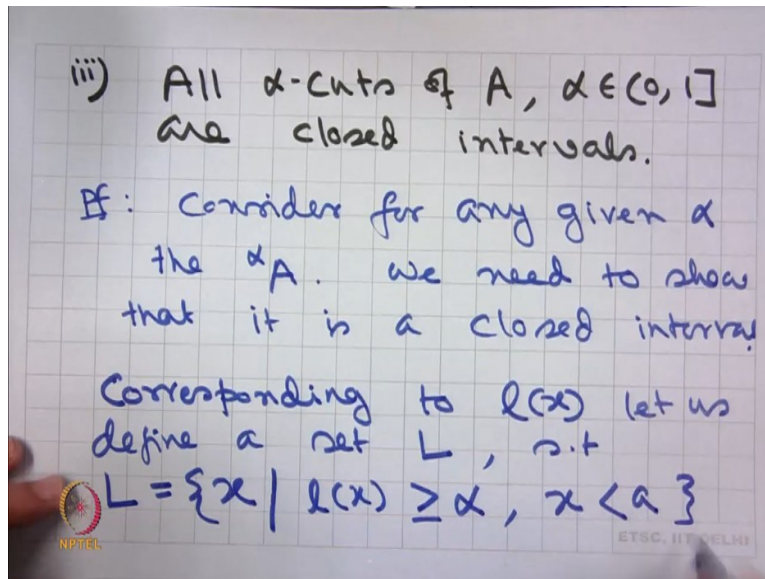 iii) All α-cuts of A, α ∈ (0, 1]
are closed intervals.
Pf: Consider for any given α
the ᵅA. We need to show
that it is a closed interval
Corresponding to l(x) let us
define a set L, s.t
L = {x | l(x) ≥ α, x < a}
NPTEL
ETSC, IIT DELHI